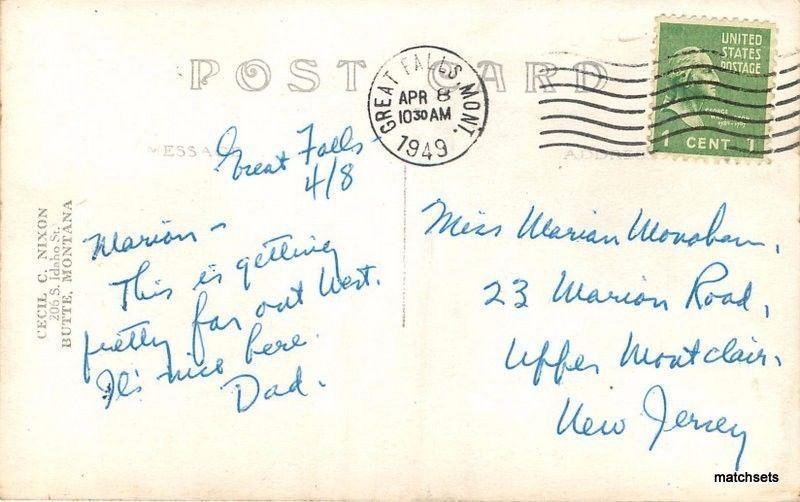 POST CARD
GREAT FALLS, MONT.
APR 8
10 30 AM
1949
UNITED
STATES
POSTAGE
1 CENT 1
MESSA
Great Falls-
4/8
Marion -
This is getting
pretty far out West.
It's nice here.
Dad.
CECIL C. NIXON
206 S. Idaho St.
BUTTE, MONTANA
Miss Marian Monahan,
23 Marion Road,
Upper Montclair,
New Jersey
matchsets